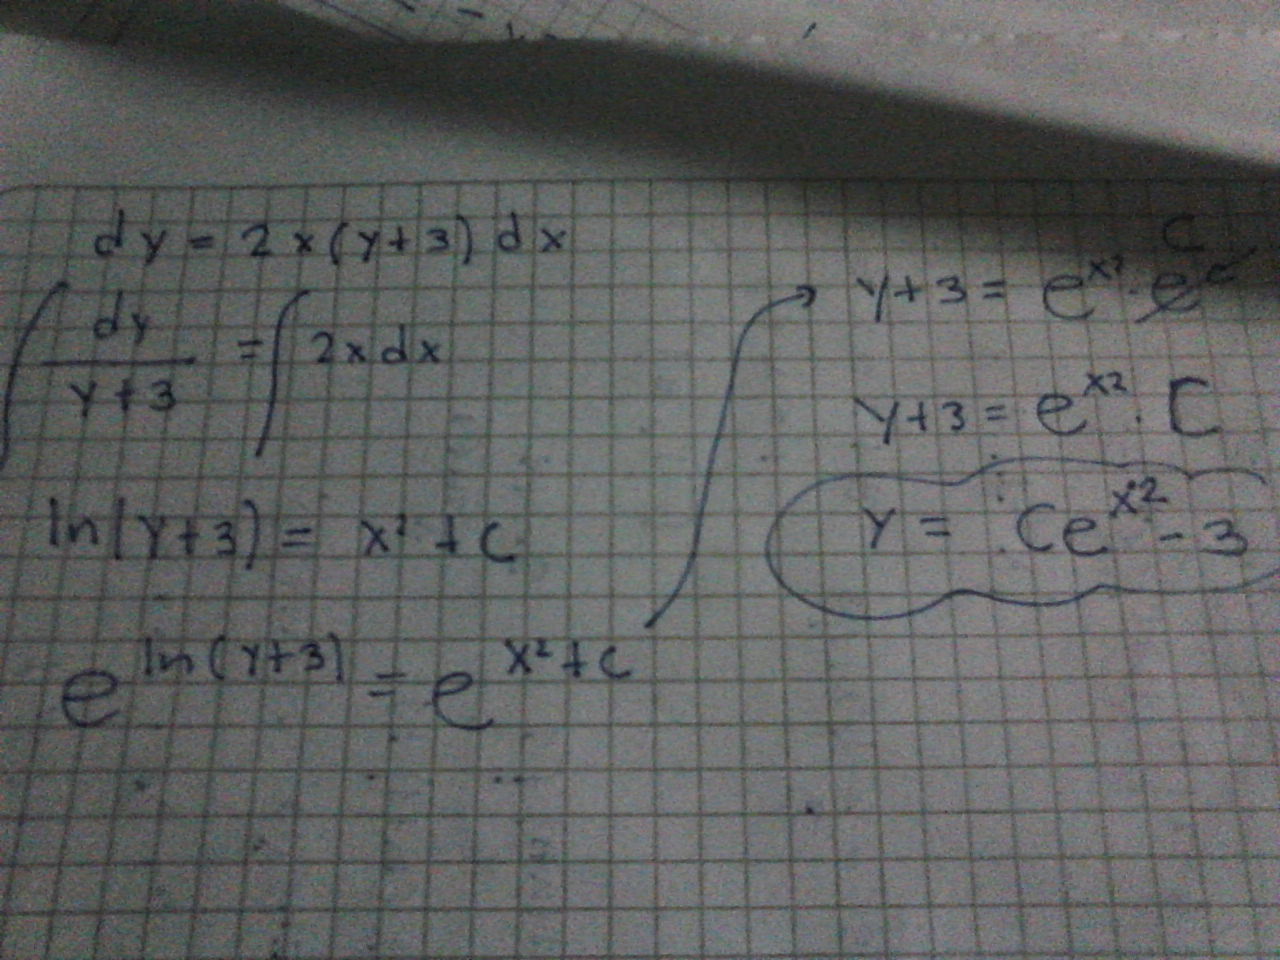 dy = 2x(y+3)dx
∫ dy/(y+3) = ∫ 2xdx
ln(y+3) = x² + c
e^(ln(y+3)) = e^(x²+c)
y+3 = e^(x²) · e^c C
y+3 = e^(x²) · C
y = Ce^(x²) - 3